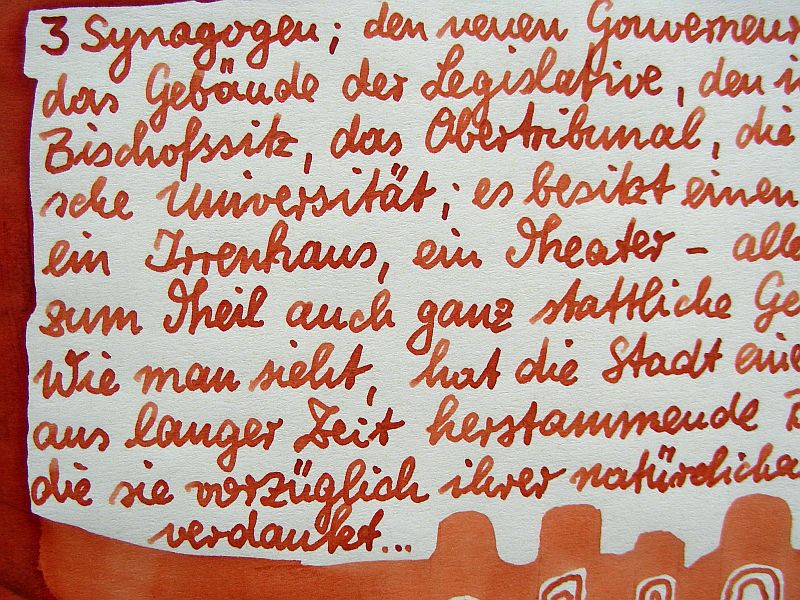 3 Synagogen; den neuen Gouverneur
das Gebäude der Legislative, den
Bischofssitz, das Obertribunal, die
sche Universität; es besitzt einen
ein Irrenhaus, ein Theater – alle
zum Theil auch ganz stattliche Ge
Wie man sieht, hat die Stadt eine
aus langer Zeit herstammende
die sie vorzüglich ihrer natürlichen
verdankt...